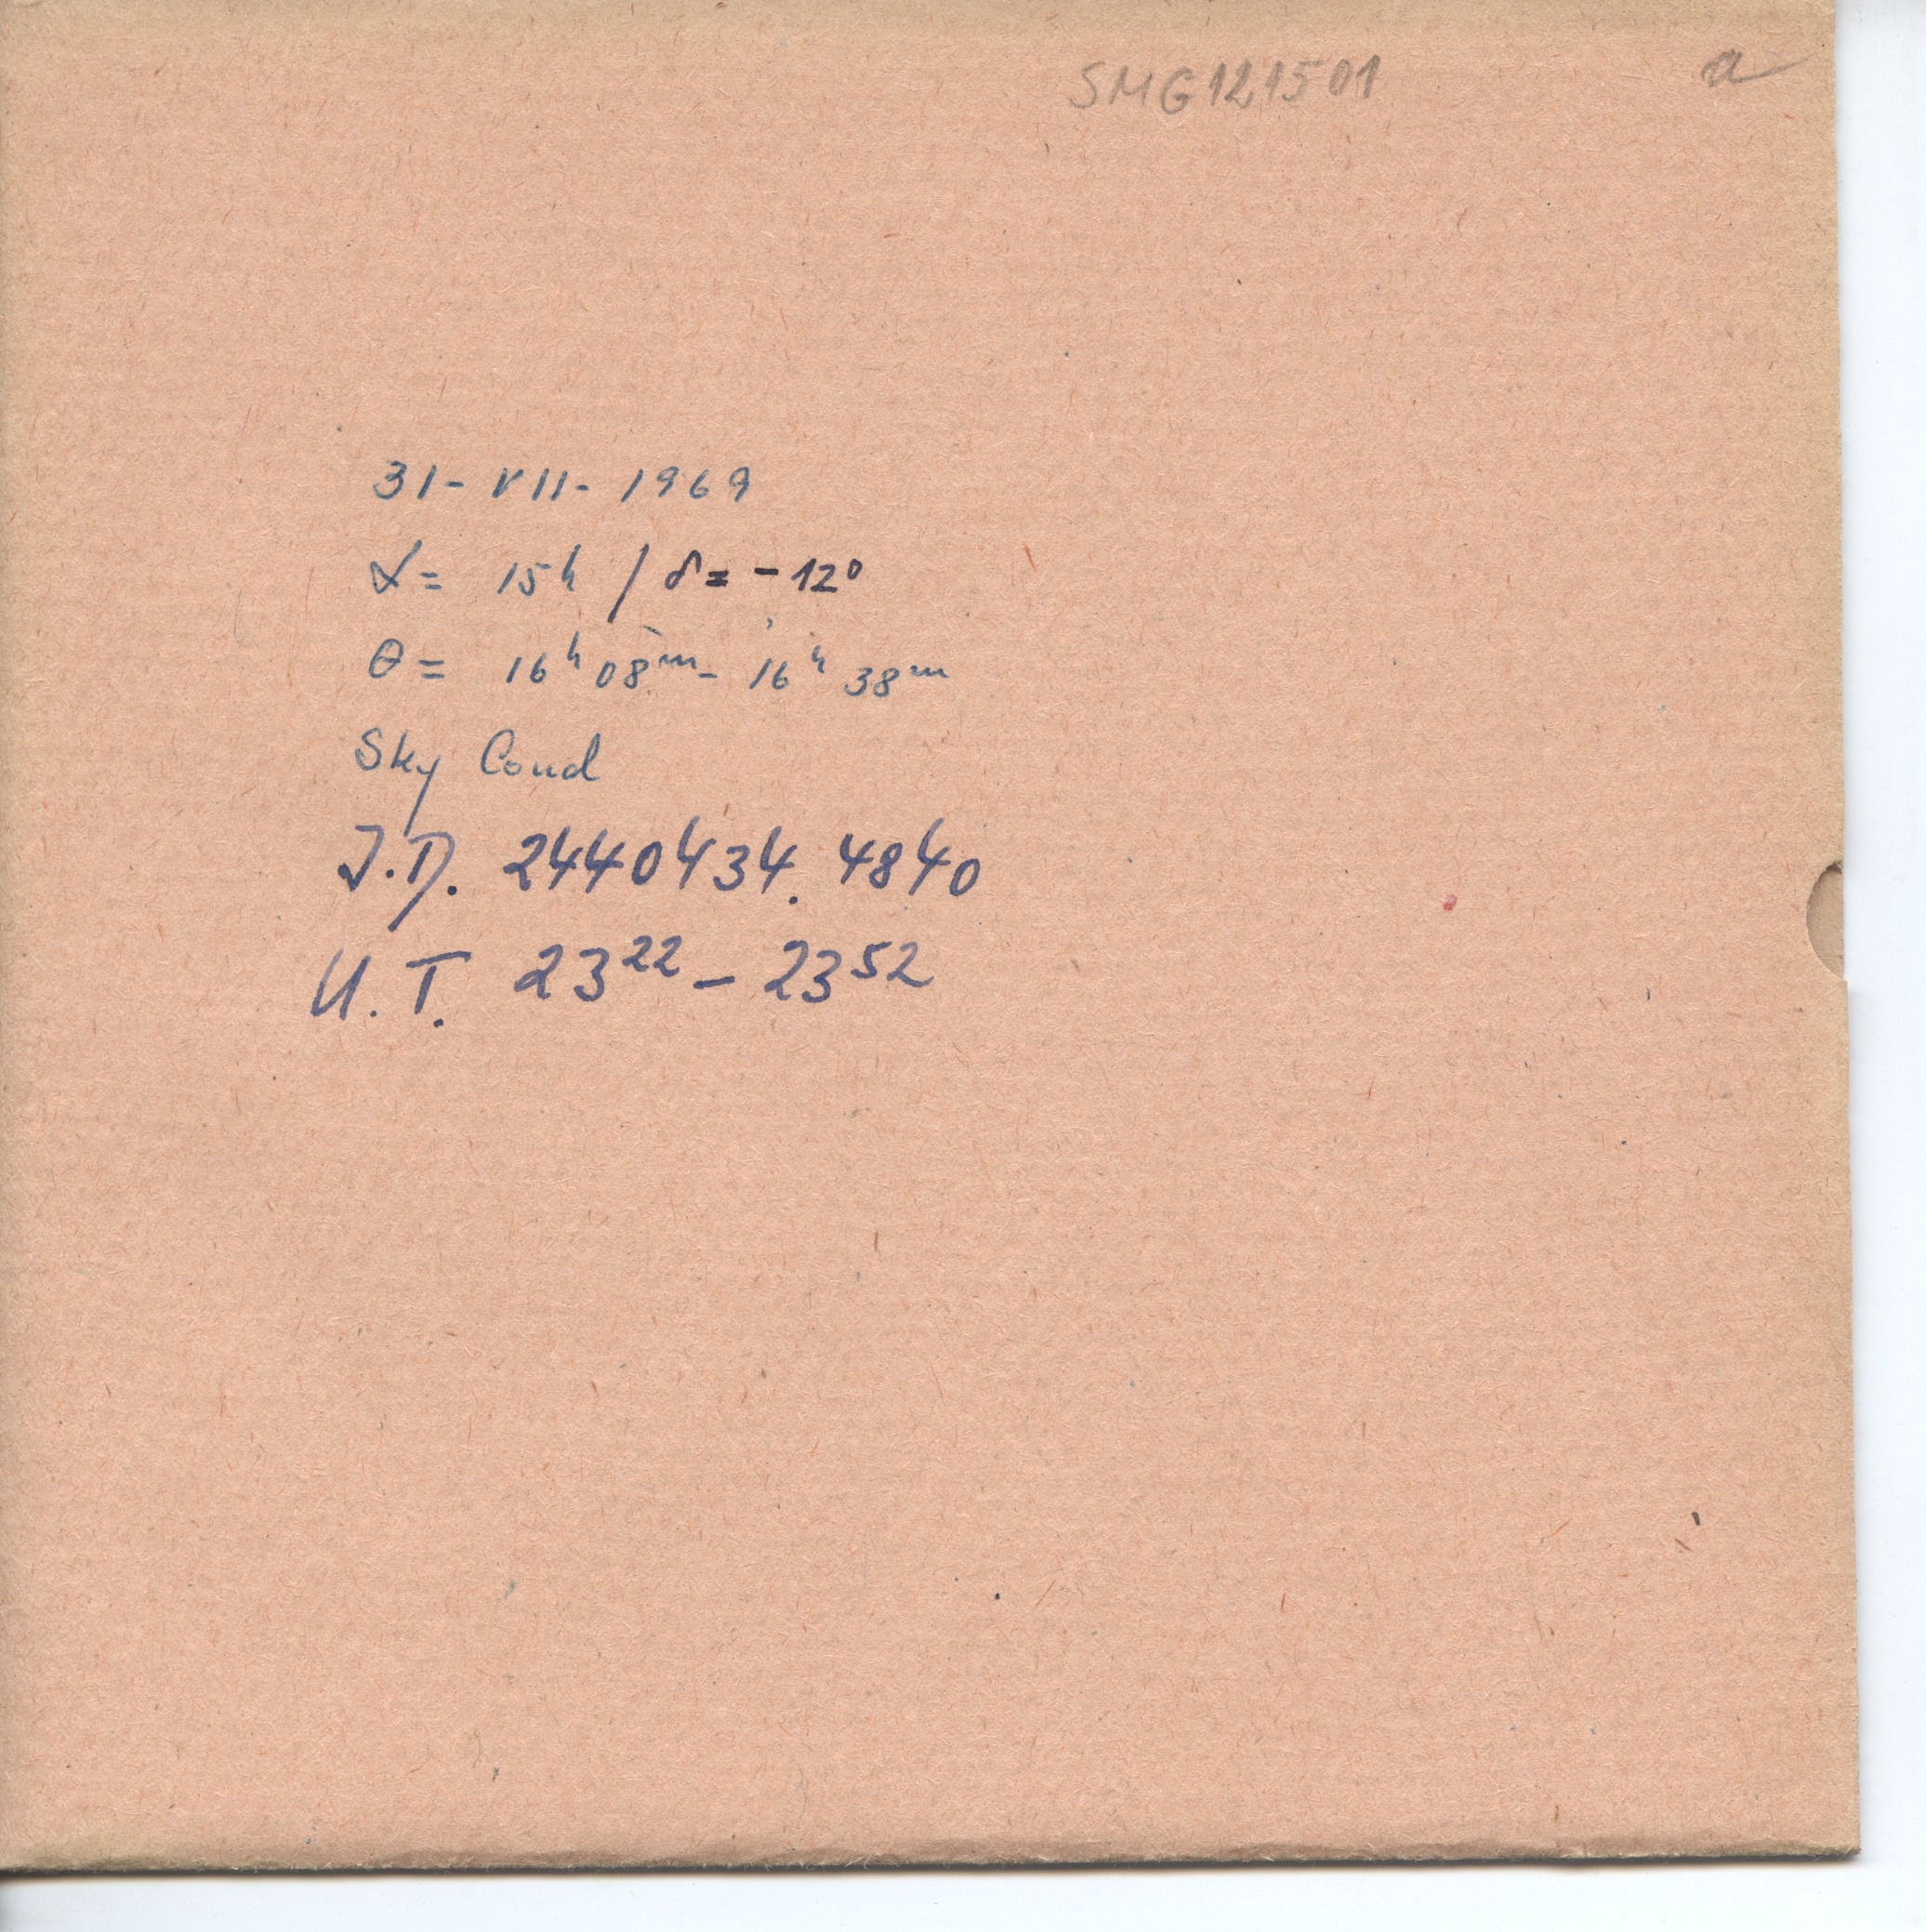 SMG121501 a
31-VII-1969
α= 15h / δ= -12°
θ= 16ʰ08ᵐ- 16ʰ 38ᵐ
Sky Cond
J.D. 2440434.4840
U.T. 23²² - 23⁵²